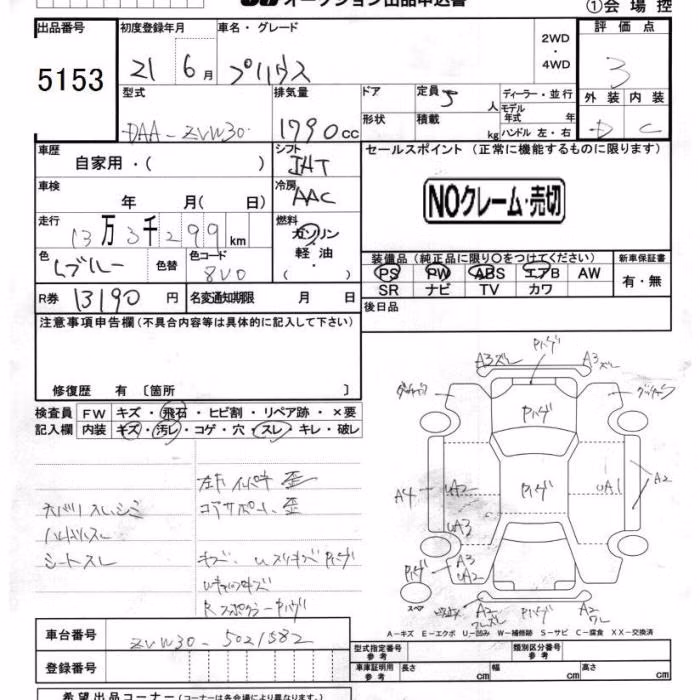 オークション出品申込書
①会場控
出品番号
5153
初度登録年月
21 6月
車名・グレード
プリウス
2WD
・
4WD
評価点
3
外装 内装
D C
型式
DAA-ZVW30
排気量
1790cc
ドア
定員 5人
ディーラー・並行
形状
積載 kg
モデル年式 年
ハンドル 左・右
車歴
自家用・( )
シフト
IAT
セールスポイント (正常に機能するものに限ります)
NOクレーム・売切
車検
年 月( 日)
冷房
AAC
走行
13万3千299km
燃料
ガソリン
軽油
・( )
色
Lブルー
色替
色コード
8V0
装備品(純正品に限り〇をつけてください)
PS PW ABS エアB AW
SR ナビ TV カワ
新車保証書
有・無
R券 13190円
名変通知期限 月 日
後日品
注意事項申告欄(不具合内容等は具体的に記入して下さい)
修復歴 有 〔箇所 〕
検査員記入欄
FW キズ・飛石・ヒビ割・リペア跡・×要
内装 キズ・汚レ・コゲ・穴・スレ・キレ・破レ
左右インパネ 歪
コアサポート、歪
ハンドルスレ
シートスレ
A3ズレ
A3ズレ
A4
UA2
UA3
UA1
A2
A3
UA2
A2
A2
スペア
A-キズ E-エクボ U-凹み W-補修跡 S-サビ C-腐食 XX-交換済
車台番号
ZVW30-5021582
登録番号
型式指定番号
参考
類別区分番号
参考
車庫証明用
参考
長さ cm
幅 cm
高さ cm
希望出品コーナー(コーナーは各会場により異なります。)